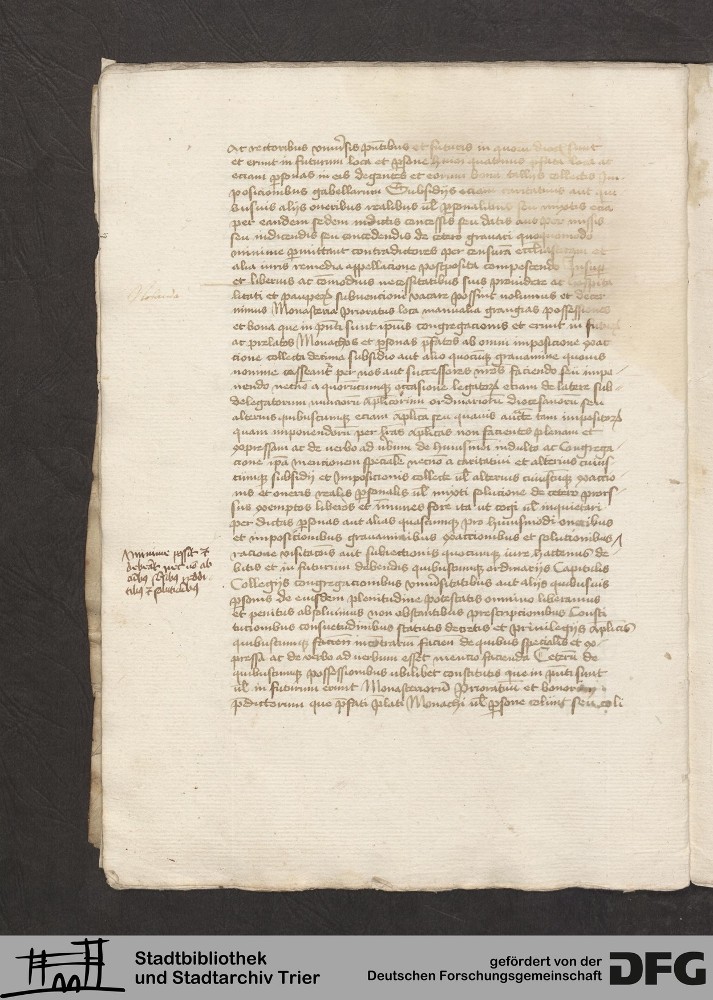 Ac rectoribus vniu'sis pn̄tibus et futuris in quoru dioc sunt
et erunt in futurum loca et psone hmoi quatenus pfata loca ac
eciam psonas in eis degentes et eorum bona tallijs collectis Im
posicionibus gabellarum Subsidijs eciam caritatiuis aut qui
busuis alijs oneribus realibus ul psonalibus seu mixtis etia
per eandem sedem indictis concessis seu datis aut per missis
seu indicendis seu concedendis de cetero grauari quoquomodo
minime pmittant contradictores per censura ecclesiastica et
alia iuris remedia appellacione postposita compescendo Insup
et liberius ac comodius necessitatibus suis prouidere ac hospita
litati et paupex subuencioni vacare possint volumus et decer
nimus Monasteria Prioratus loca manualia grangias possessiones
et bona que in pnti sunt ipius congregacionis et erunt in futur
ac prelatos Monachos et psonas pfatos ab omni imposicione exac
cione collecta decima subsidio aut alio quocuq grauamine quouis
nomine censeant per nos aut successores nros faciendo seu impo
nendo necno a quorucumq occasione legatox etiam de latere sub
delegatorum nunciorum aplicorum ordinariorum diocesanoru seu
alterius quibuscumq eciam aplica seu quauis aucte tam impositox
quam imponendoru per lras aplicas non facientes plenam et
expressam ac de verbo ad vbum de huiusmoi indulto ac Congrega
cione ipa mencionem speciale necno a caritatiui et alterius cuius
cumq subsidij et Imposicionis collecte ul alterius cuiuscumq exaccio
nis et oneris realis psonalis ul mixti solucione de cetero prors
sus exemptos liberos et immunes fore ita ut cogi ul inquietari
per dictas psonas aut alias quascumq pro huiusmodi oneribus
et imposicionibus grauaminibus exaccionibus et solucionibus
racione visitacois aut subiectionis quocumq iure hactenus de
bitis et in futurum debendis quibuscumq ordinarijs Capitulis
Collegijs congregacionibus vniusitatibus aut alijs quibusuis
psonis de eiusdem plenitudine potestatis omnino liberamus
et penitus absoluimus non obstantibus prescripcionibus Consti
tucionibus consuetudinibus statutis decretis et priuilegijs aplicis
quibuscumq facien incontrariu facien de quibus specialis et ex
pressa ac de verbo ad verbum esset mencio facienda Ceteru de
quibuscumq possessionibus vbilibet constitutis que in pnti sunt
ul in futurum erunt Monasterioru Prioratuu et bonorum
pdictorum que pfati plati Monachi ul psone colunt seu coli
minime possit
Stadtbibliothek
und Stadtarchiv Trier
gefördert von der
Deutschen Forschungsgemeinschaft
DFG